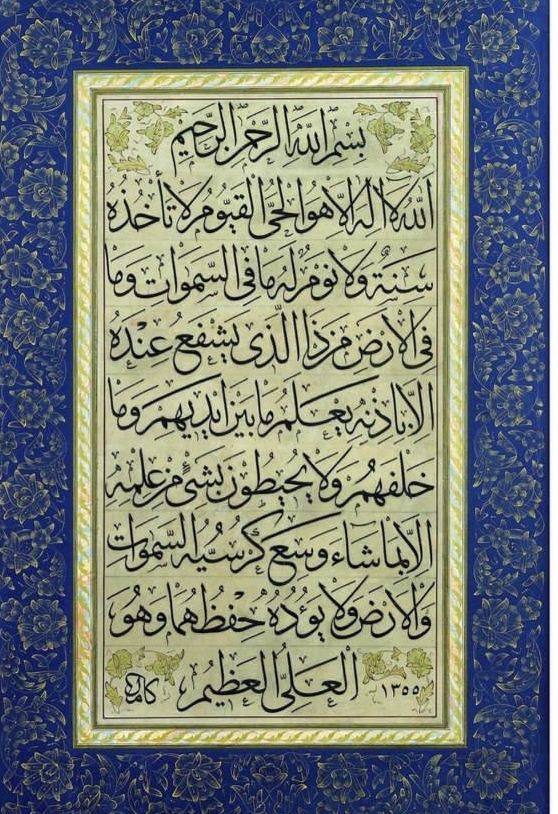 بسم الله الرحمن الرحيم
الله لا اله الا هو الحي القيوم لا تأخذه
سنة ولا نوم له ما في السموات وما
في الارض من ذا الذي يشفع عنده
الا باذنه يعلم ما بين ايديهم وما
خلفهم ولا يحيطون بشيء من علمه
الا بما شاء وسع كرسيه السموات
والارض ولا يؤده حفظهما وهو
العلي العظيم
۱۳۵۵